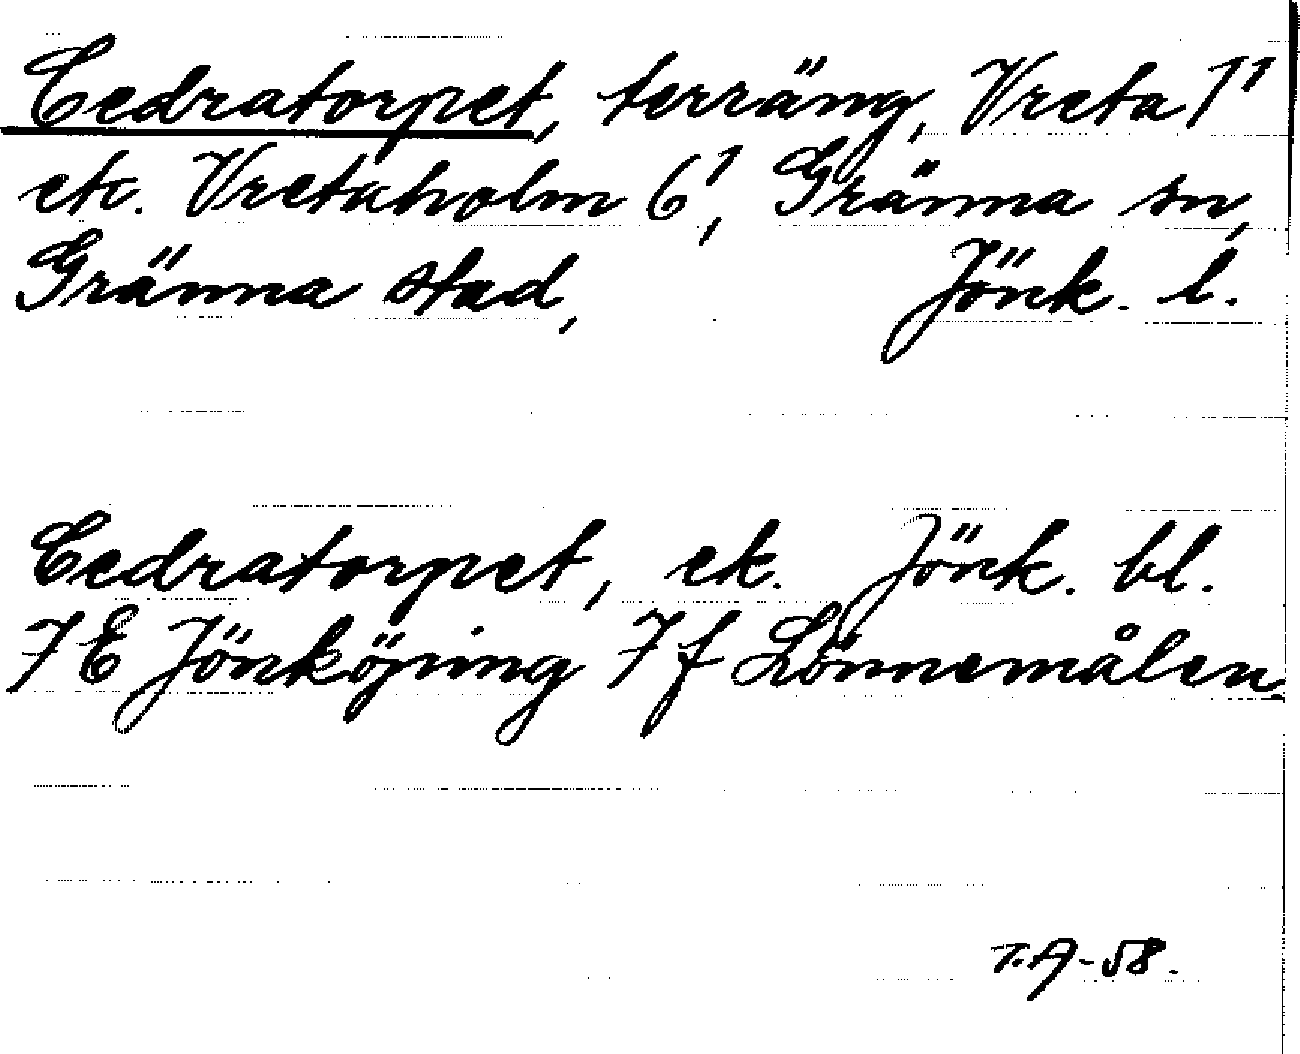 Cedratorpet, terräng, Vreta 1¹
etc. Vretaholm 6¹, Gränna sn,
Gränna stad, Jönk. l.
Cedratorpet, ek. Jönk. bl.
7E Jönköping 7f Lönnemålen.
T.A-58.